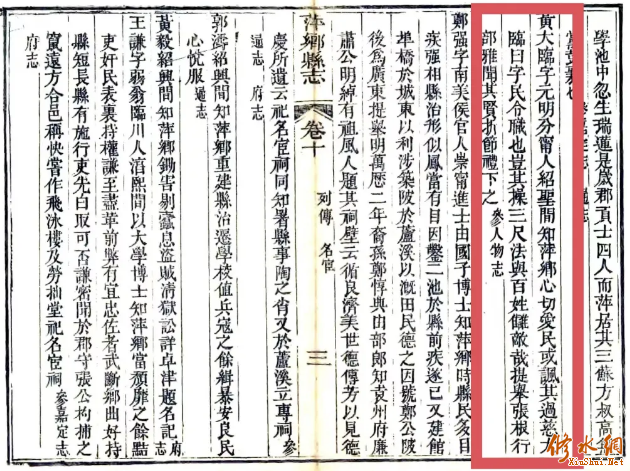 學池中忽生瑞蓮是歲郡貢士四人而萍居其三蘇方叔高
黃大臨字元明分甯人紹聖間知萍鄉心切愛民或諷其過慈大
臨曰字民令職也豈其操三尺法與百姓讎敵哉提舉張根行
部雅聞其賢折節禮下之 參人物志
鄭强字南美侯官人崇甯進士由國子博士知萍鄉時縣民多目
疾强相縣治形似鳳當有目因鑿二池於縣前疾遂已又建館
埠橋於城東以利涉築陂於蘆溪以溉田民德之因號鄭公陂
後爲廣東提舉明萬曆二年裔孫鄭惇典由部郎知袁州府廉
肅公明綽有祖風人題其祠壁云循良濟美世德傳芳以見德
萍鄉縣志 卷十 列傳 名宦 三
慶所遺云祀名宦祠同知署縣事陶之肖又於蘆溪立專祠 參
通志 府志
郭濤紹興間知萍鄉重建縣治遷學校值兵寇之餘緝暴安良民
心悅服 通志
黃毅紹興間知萍鄉鋤害剔蠹息盜賊清獄訟詳卓津題名記 府志
王謙字弱翁臨川人淳熙間以大學博士知萍鄉當頹靡之餘黠
吏奸民表裏持權謙至盡革前弊有宜忠佐者武斷鄉曲好持
縣短長縣有施行吏先白取可否謙密聞於郡守張公杓捕之
竄遠方合邑稱快嘗作飛泳樓及勞拙堂祀名宦祠 參嘉定志
府志
修水網
XiuShui.Net